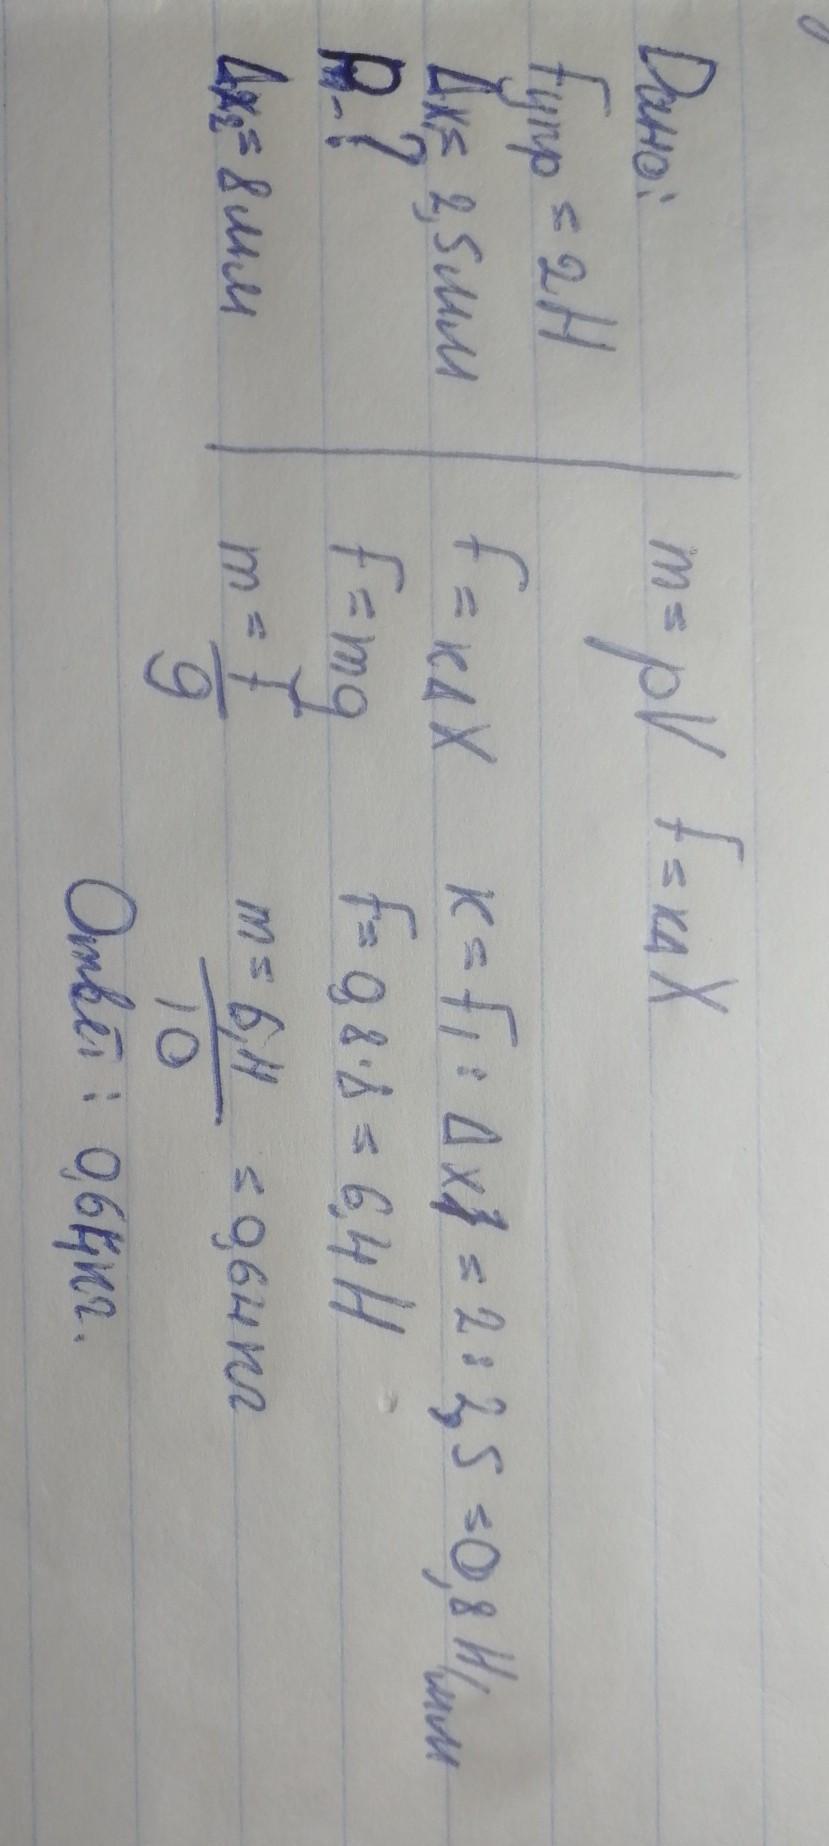 Дано:
Fупр = 2Н
Δx₁ = 2,5мм
m-?
Δx₂ = 8мм
m = ρV F = кΔX
F = кΔX к = F₁ : Δx1 = 2 : 2,5 = 0,8 Н/мм
F = mg F = 0,8·8 = 6,4Н
m = F/g m = 6,4/10 = 0,64кг
Ответ: 0,64кг.